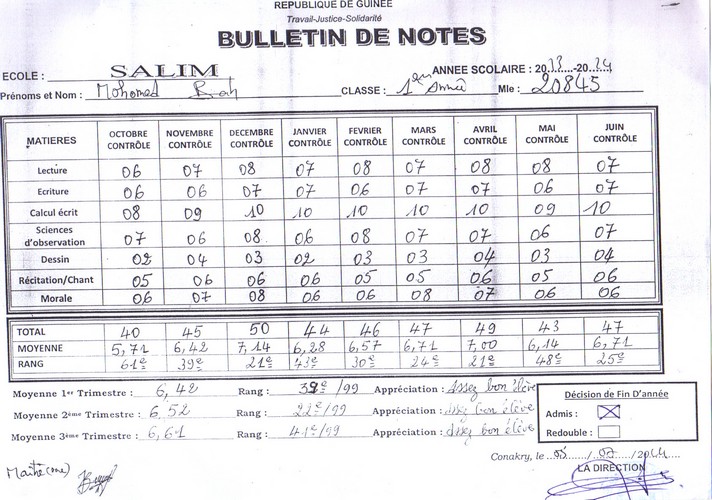 REPUBLIQUE DE GUINEE
Travail-Justice-Solidarité
BULLETIN DE NOTES
ECOLE : SALIM ANNEE SCOLAIRE : 2013-2014
Prénoms et Nom : Mohomed Bah CLASSE : 1ère Année Mle : 20845
MATIERES OCTOBRE CONTRÔLE NOVEMBRE CONTRÔLE DECEMBRE CONTRÔLE JANVIER CONTRÔLE FEVRIER CONTRÔLE MARS CONTRÔLE AVRIL CONTRÔLE MAI CONTRÔLE JUIN CONTRÔLE
Lecture 06 07 08 07 08 07 08 08 07
Ecriture 06 06 07 07 06 07 07 06 07
Calcul écrit 08 09 10 10 10 10 10 09 10
Sciences d'observation 07 06 08 06 08 07 07 06 07
Dessin 02 04 03 02 03 03 04 03 04
Récitation/Chant 05 06 06 06 05 05 06 05 06
Morale 06 07 08 06 06 08 07 06 06
TOTAL 40 45 50 44 46 47 49 43 47
MOYENNE 5,71 6,42 7,14 6,28 6,57 6,71 7,00 6,14 6,71
RANG 61e 39e 21e 43e 30e 24e 21e 48e 25e
Moyenne 1er Trimestre : 6,42 Rang : /99 Appréciation : Assez bon élève
Moyenne 2ème Trimestre : 6,52 Rang : 22e/99 Appréciation : Assez bon élève
Moyenne 3ème Trimestre : 6,61 Rang : 41e/99 Appréciation : Assez bon élève
Décision de Fin D'année
Admis :
Redouble :
Conakry, le 05/07/2014
LA DIRECTION
Maître(sse)